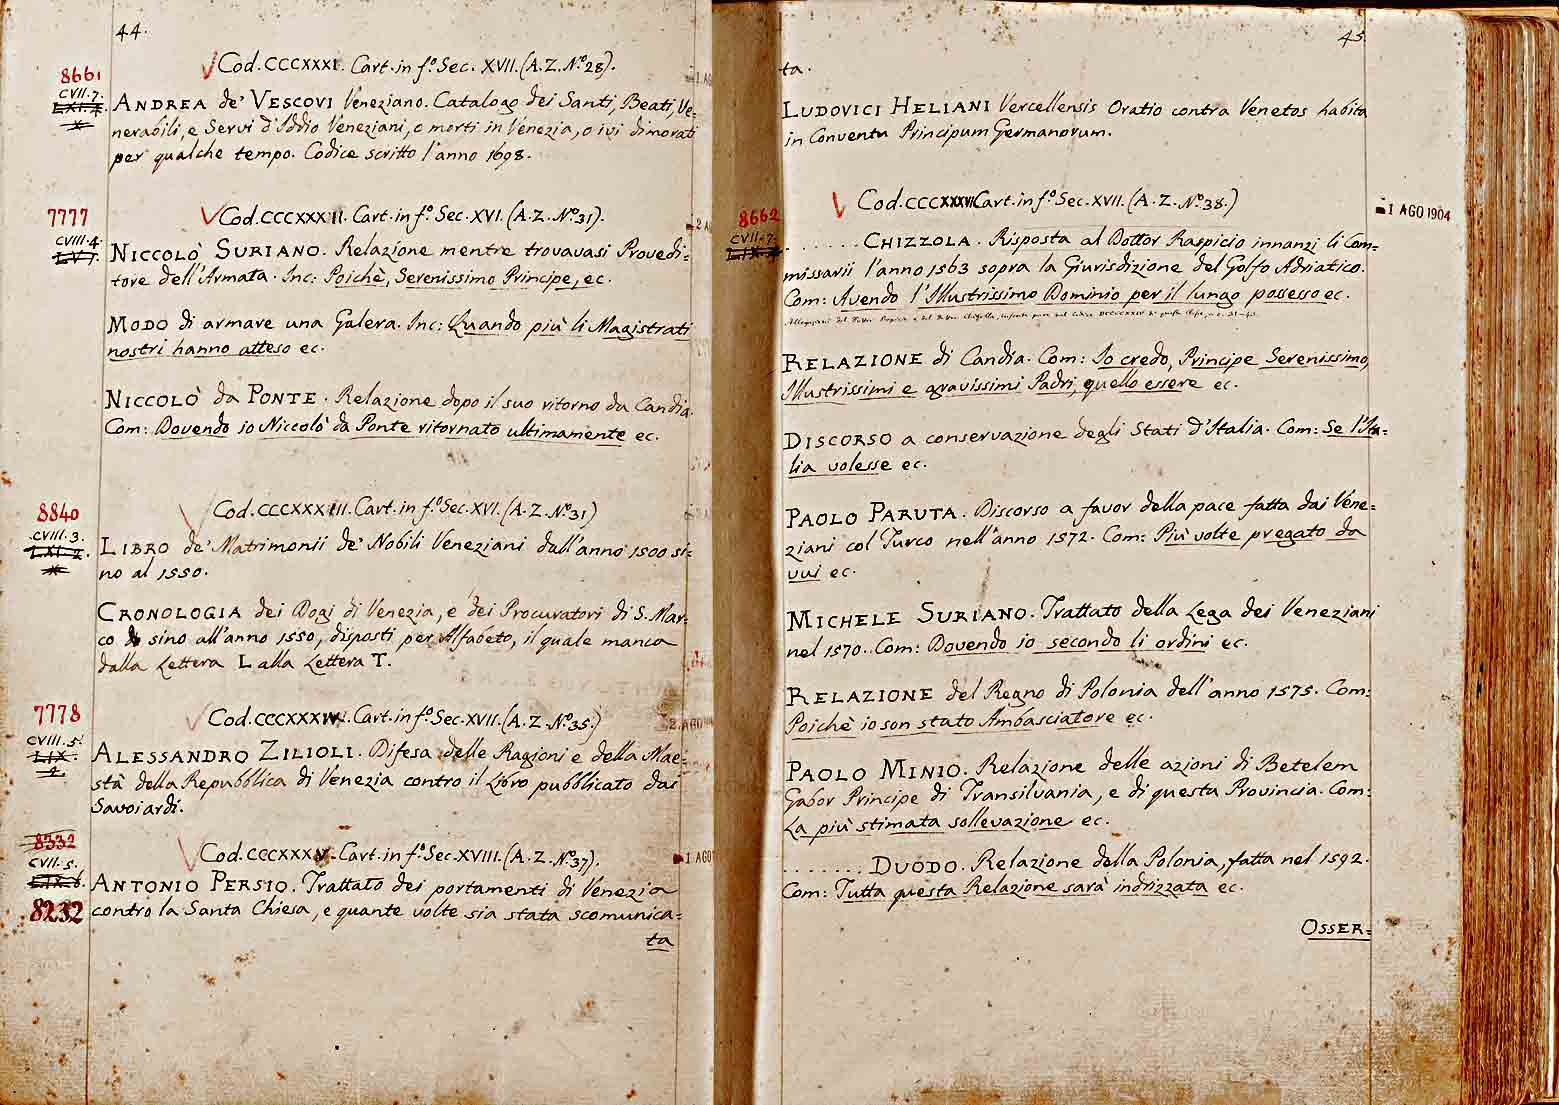 44.
Cod. CCCXXXI. Cart. in f.º Sec. XVII. (A. Z. Nº. 28).
8661
CVII. 7.
ANDREA de' VESCOVI Veneziano. Catalogo dei Santi, Beati, Ve-
nerabili, e Servi d'Iddio Veneziani, o morti in Venezia, o ivi dimorati
per qualche tempo. Codice scritto l'anno 1698.
7777
Cod. CCCXXXII. Cart. in f.º Sec. XVI. (A. Z. Nº. 31).
CVIII. 4.
NICCOLÒ SURIANO. Relazione mentre trovavasi Provedi-
tore dell'Armata. Inc: Poichè, Serenissimo Principe, ec.
MODO di armare una Galera. Inc: Quando più li Magistrati
nostri hanno atteso ec.
NICCOLÒ da PONTE. Relazione dopo il suo ritorno da Candia.
Com: Dovendo io Niccolò da Ponte ritornato ultimamente ec.
8840
Cod. CCCXXXIII. Cart. in f.º Sec. XVI. (A. Z. Nº. 31)
CVIII. 3.
LIBRO de' Matrimonii de' Nobili Veneziani dall'anno 1500 si-
no al 1550.
CRONOLOGIA dei Dogi di Venezia, e dei Procuratori di S. Mar-
co sino all'anno 1550, disposti per Alfabeto, il quale manca
dalla Lettera L alla Lettera T.
7778
Cod. CCCXXXIV. Cart. in f.º Sec. XVII. (A. Z. Nº. 35.)
CVIII. 5.
ALESSANDRO ZILIOLI. Difesa delle Ragioni e della Mae-
stà della Repubblica di Venezia contro il Libro pubblicato dai
Savoiardi.
8332
Cod. CCCXXXV. Cart. in f.º Sec. XVIII. (A. Z. Nº. 37).
CVII. 5.
LIX. 6.
ANTONIO PERSIO. Trattato dei portamenti di Venezia
8232
contro la Santa Chiesa, e quante volte sia stata scomunica=
ta
45.
ta.
LUDOVICI HELIANI Vercellensis Oratio contra Venetos habita
in Conventu Principum Germanorum.
8662
Cod. CCCXXXVII Cart. in f.º Sec. XVII. (A. Z. Nº. 38.)
1 AGO 1904
CVII. 7.
....... CHIZZOLA. Risposta al Dottor Raspicio innanzi li Com=
missarii l'anno 1563 sopra la Giurisdizione del Golfo Adriatico.
Com: Avendo l'Illustrissimo Dominio per il lungo possesso ec.
RELAZIONE di Candia. Com: Io credo, Principe Serenissimo,
Illustrissimi e gravissimi Padri, quello essere ec.
DISCORSO a conservazione degli Stati d'Italia. Com: Se l'Ita=
lia volesse ec.
PAOLO PARUTA. Discorso a favor della pace fatta dai Vene=
ziani col Turco nell'anno 1572. Com: Più volte pregato da
vui ec.
MICHELE SURIANO. Trattato della Lega dei Veneziani
nel 1570. Com: Dovendo io secondo li ordini ec.
RELAZIONE del Regno di Polonia dell'anno 1575. Com:
Poichè io son stato Ambasciatore ec.
PAOLO MINIO. Relazione delle azioni di Betelem
Gabor Principe di Transilvania, e di questa Provincia. Com:
La più stimata sollevazione ec.
....... DUODO. Relazione della Polonia, fatta nel 1592.
Com: Tutta questa Relazione sarà indrizzata ec.
OSSER=